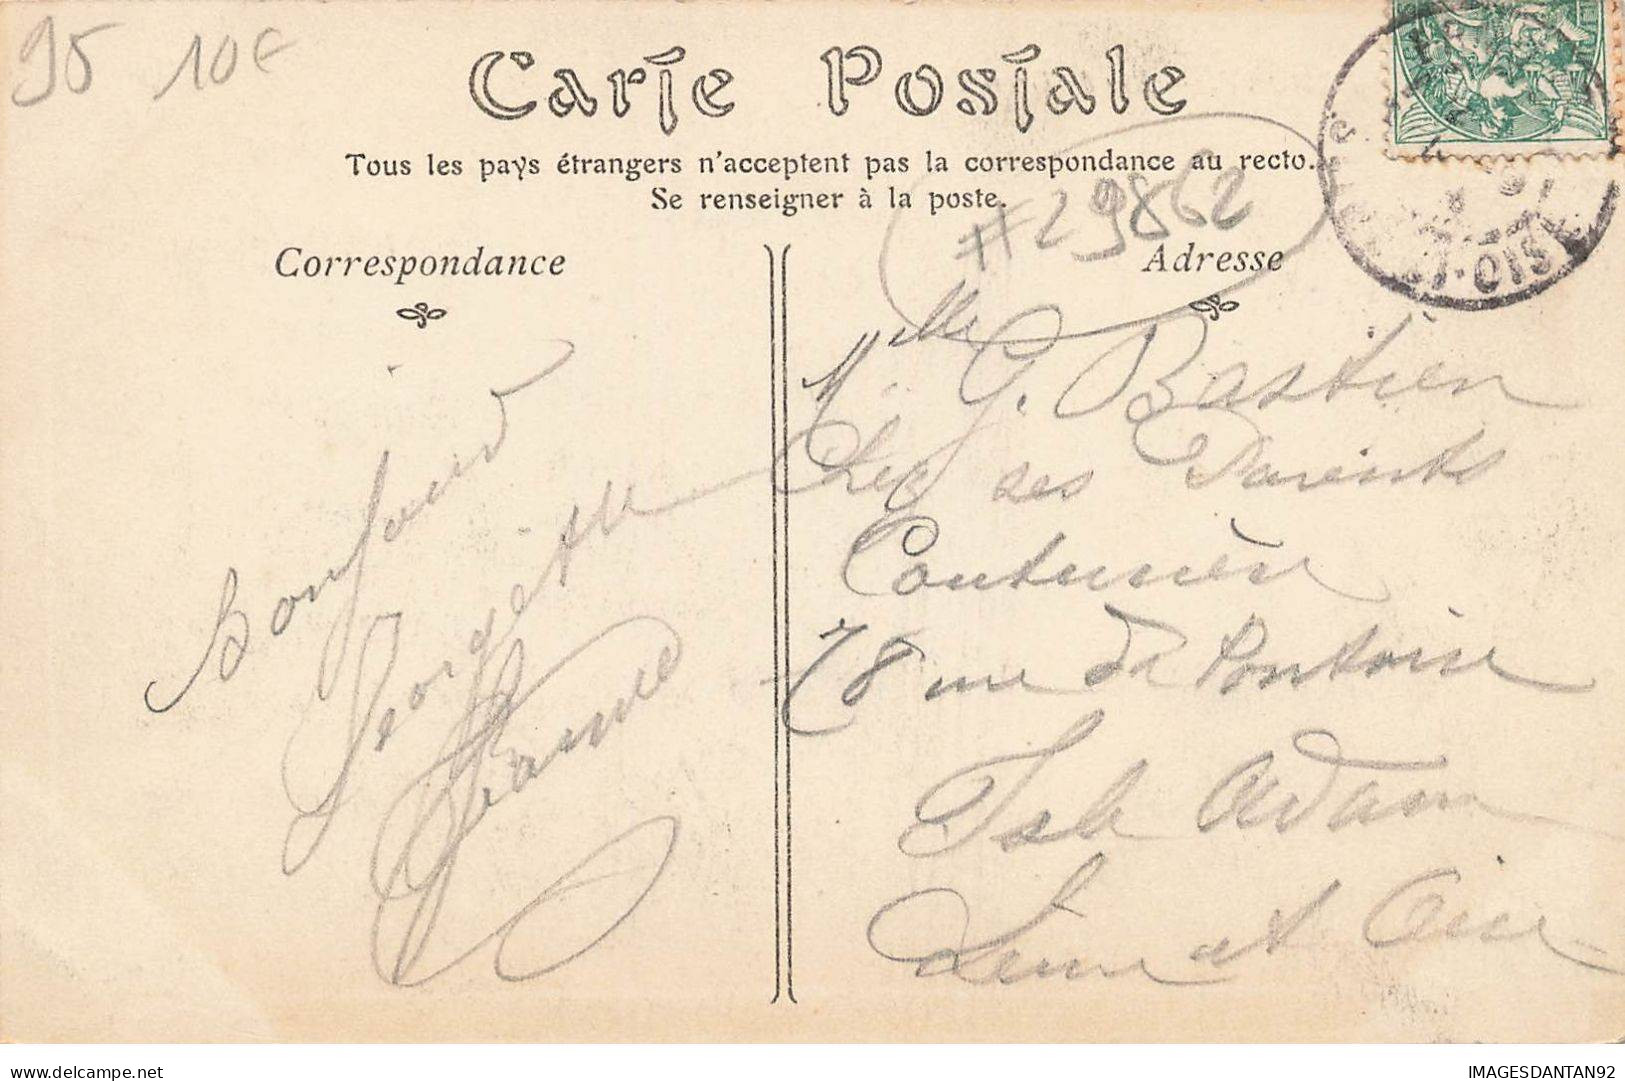 95 10€
Carte Postale
Tous les pays étrangers n'acceptent pas la correspondance au recto.
Se renseigner à la poste.
#29862
Correspondance
Bonjour
Georgette
Adresse
Mlle G. Bastien
Chez ses Parents
Couturière
78 rue de Pontoise
Isle Adam
Seine et Oise
delcampe.net
IMAGESDANTAN92